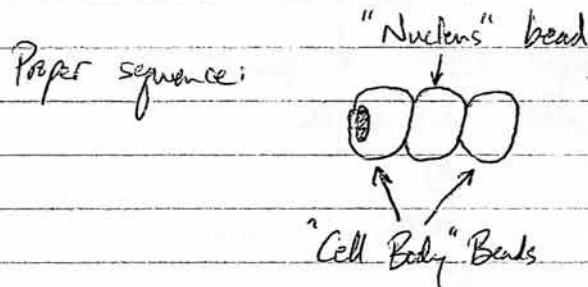 "Nucleus" bead
Proper sequence:
"Cell Body" Beads